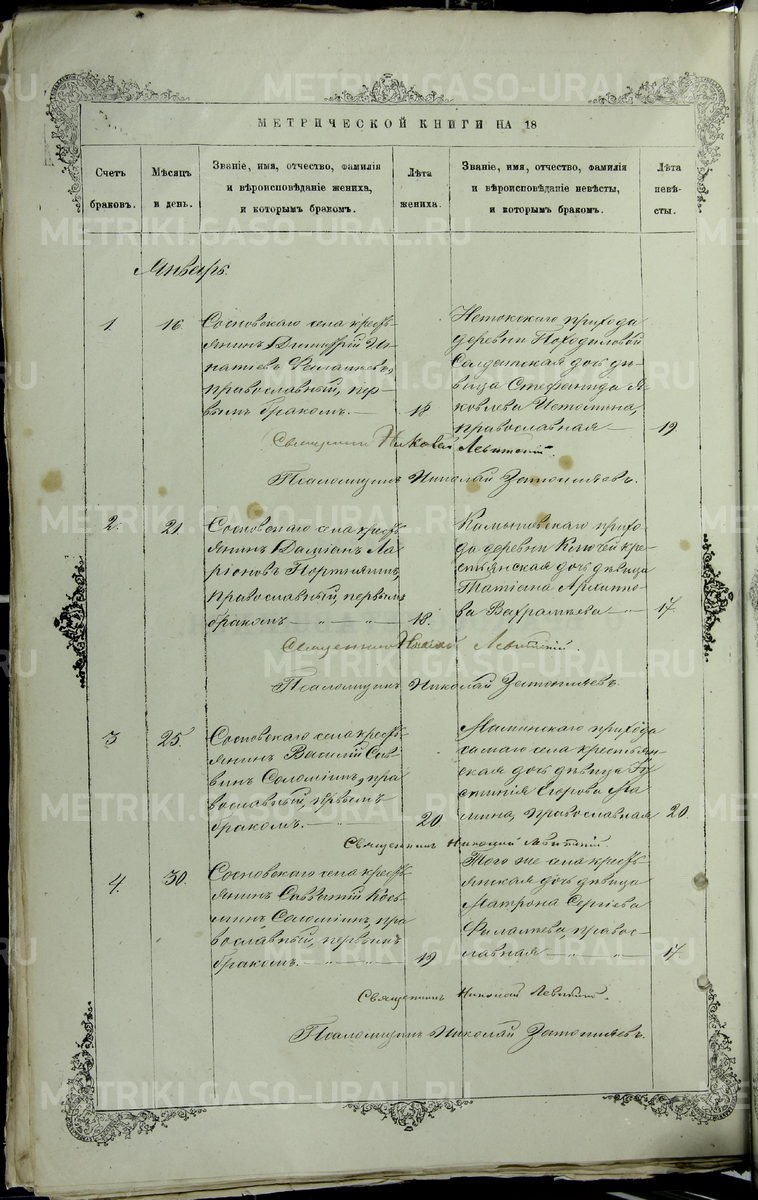 МЕТРИЧЕСКОЙ КНИГИ НА 18
Счетъ браковъ.
Мѣсяцъ и день.
Званіе, имя, отчество, фамилія и вѣроисповѣданіе жениха, и которымъ бракомъ.
Лѣта жениха.
Званіе, имя, отчество, фамилія и вѣроисповѣданіе невѣсты, и которымъ бракомъ.
Лѣта невѣсты.
Январь.
1.
16.
Сосновскаго села кресть
янинъ Димитрій Иг
натіевъ
православный, пер
вымъ бракомъ.
18
прихода
деревни Походиловой
Солдатская дочь дѣ
вица Стефанида Я
ковлева Истомина,
православная
19
Священникъ Николай Левитскій.
Псаломщикъ Николай
2.
21.
Сосновскаго села кресть
янинъ Даміанъ Ла
ріоновъ
православный, первымъ
бракомъ
18.
Камышевскаго прихо
да деревни Ключей кре
стьянская дочь дѣвица
Татіана
ва
17.
Священникъ Николай Левитскій.
Псаломщикъ Николай
3
25.
Сосновскаго села кресть
янинъ Василій Сав
винъ Соломіинъ, пра
вославный, первымъ
бракомъ.
20
Маминскаго прихода
самаго села крестьян
ская дочь дѣвица
Егорова Ма
мина, православная
20.
Священникъ Николай Левитскій.
4.
30.
Сосновскаго села кресть
янинъ Савватій Кось
минъ Соломіинъ, пра
вославный, первымъ
бракомъ.
19
Того же села кресть
янская дочь дѣвица
Матрона Сергіева
Филатева, правос
лавная
17.
Священникъ Николай Левитскій.
Псаломщикъ Николай
METRIKI.GASO-URAL.RU